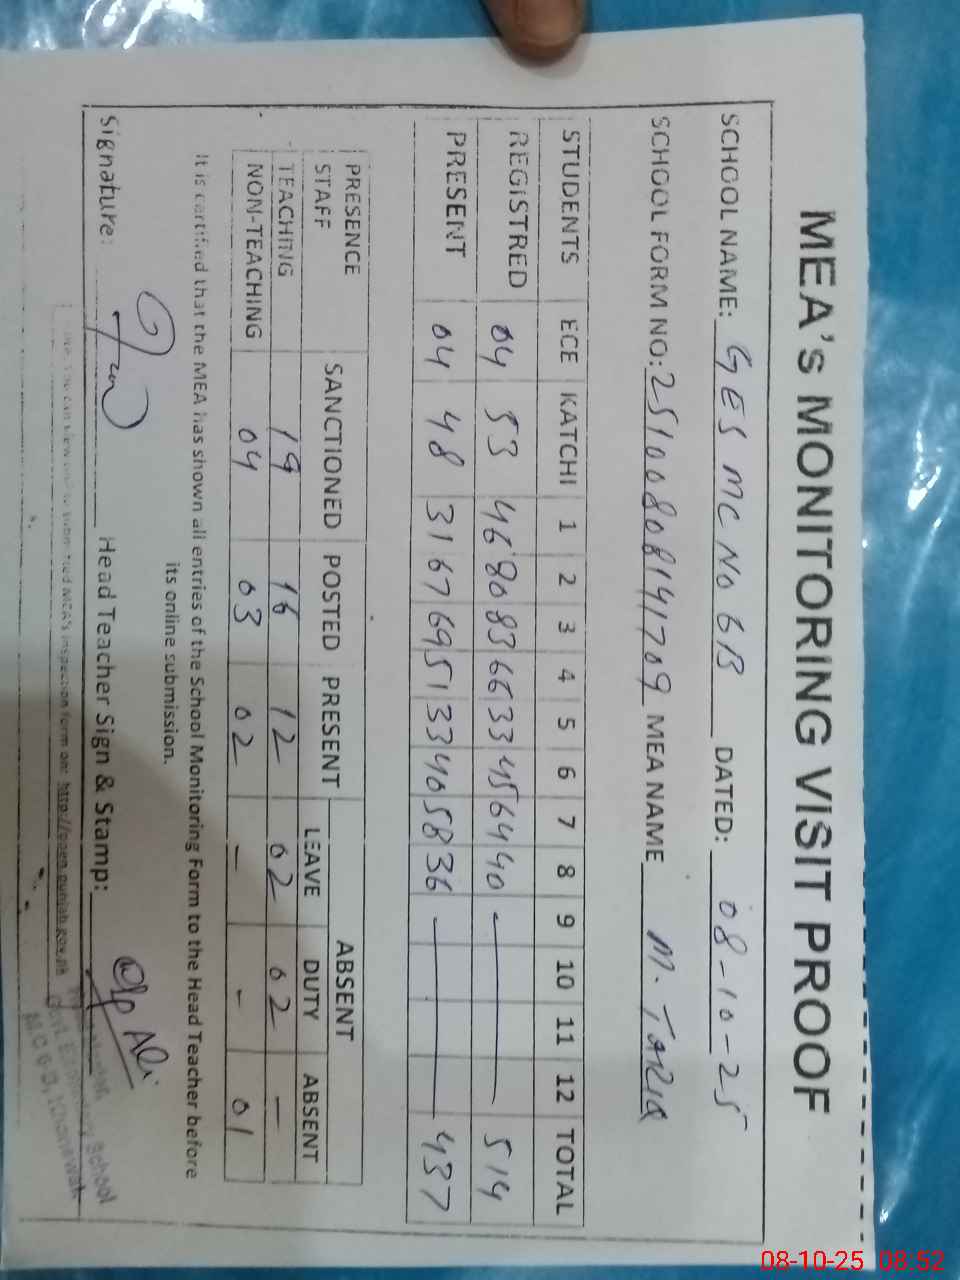 MEA's MONITORING VISIT PROOF
SCHOOL NAME: GES MC NO 6B DATED: 08-10-25
SCHOOL FORM NO: 25100808141709 MEA NAME M. TARIQ
STUDENTS ECE KATCHI 1 2 3 4 5 6 7 8 9 10 11 12 TOTAL
REGISTRED 04 53 46 80 83 66 33 45 64 40 — 514
PRESENT 04 48 31 67 69 51 33 40 58 36 — 437
PRESENCE STAFF SANCTIONED POSTED PRESENT ABSENT
LEAVE DUTY ABSENT
TEACHING 19 16 12 02 02 -
NON-TEACHING 04 03 02 - - 01
It is certified that the MEA has shown all entries of the School Monitoring Form to the Head Teacher before
its online submission.
Signature: Head Teacher Sign & Stamp:
You can view online submitted MEA's inspection form on: http://open.punjab.gov.pk
Govt. Elementary School
M.C 6-B, Khanewal
08-10-25 08:52